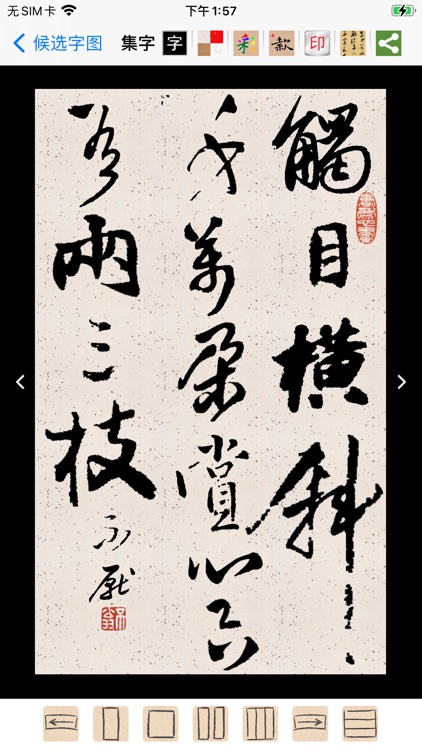 无SIM卡 下午1:57
候选字图 集字 字 彩 款 印
觸目橫斜
千萬朵賞心只
有兩三枝
不厭